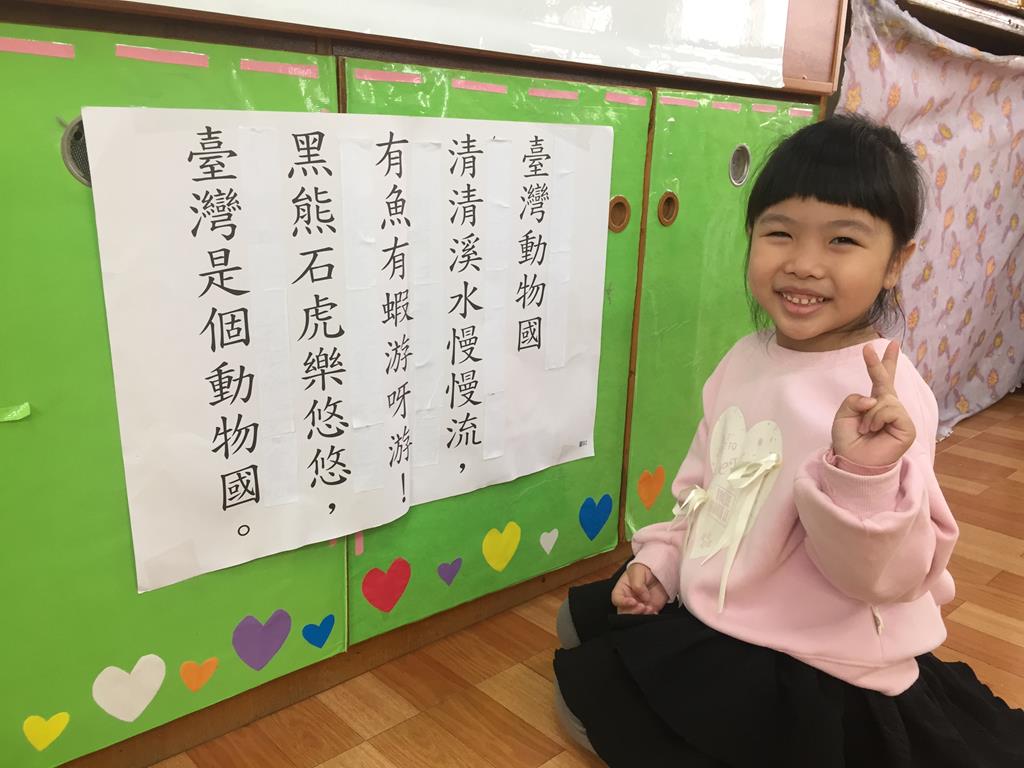 臺灣動物國
清清溪水慢慢流，
有魚有蝦游呀游！
黑熊石虎樂悠悠，
臺灣是個動物國。